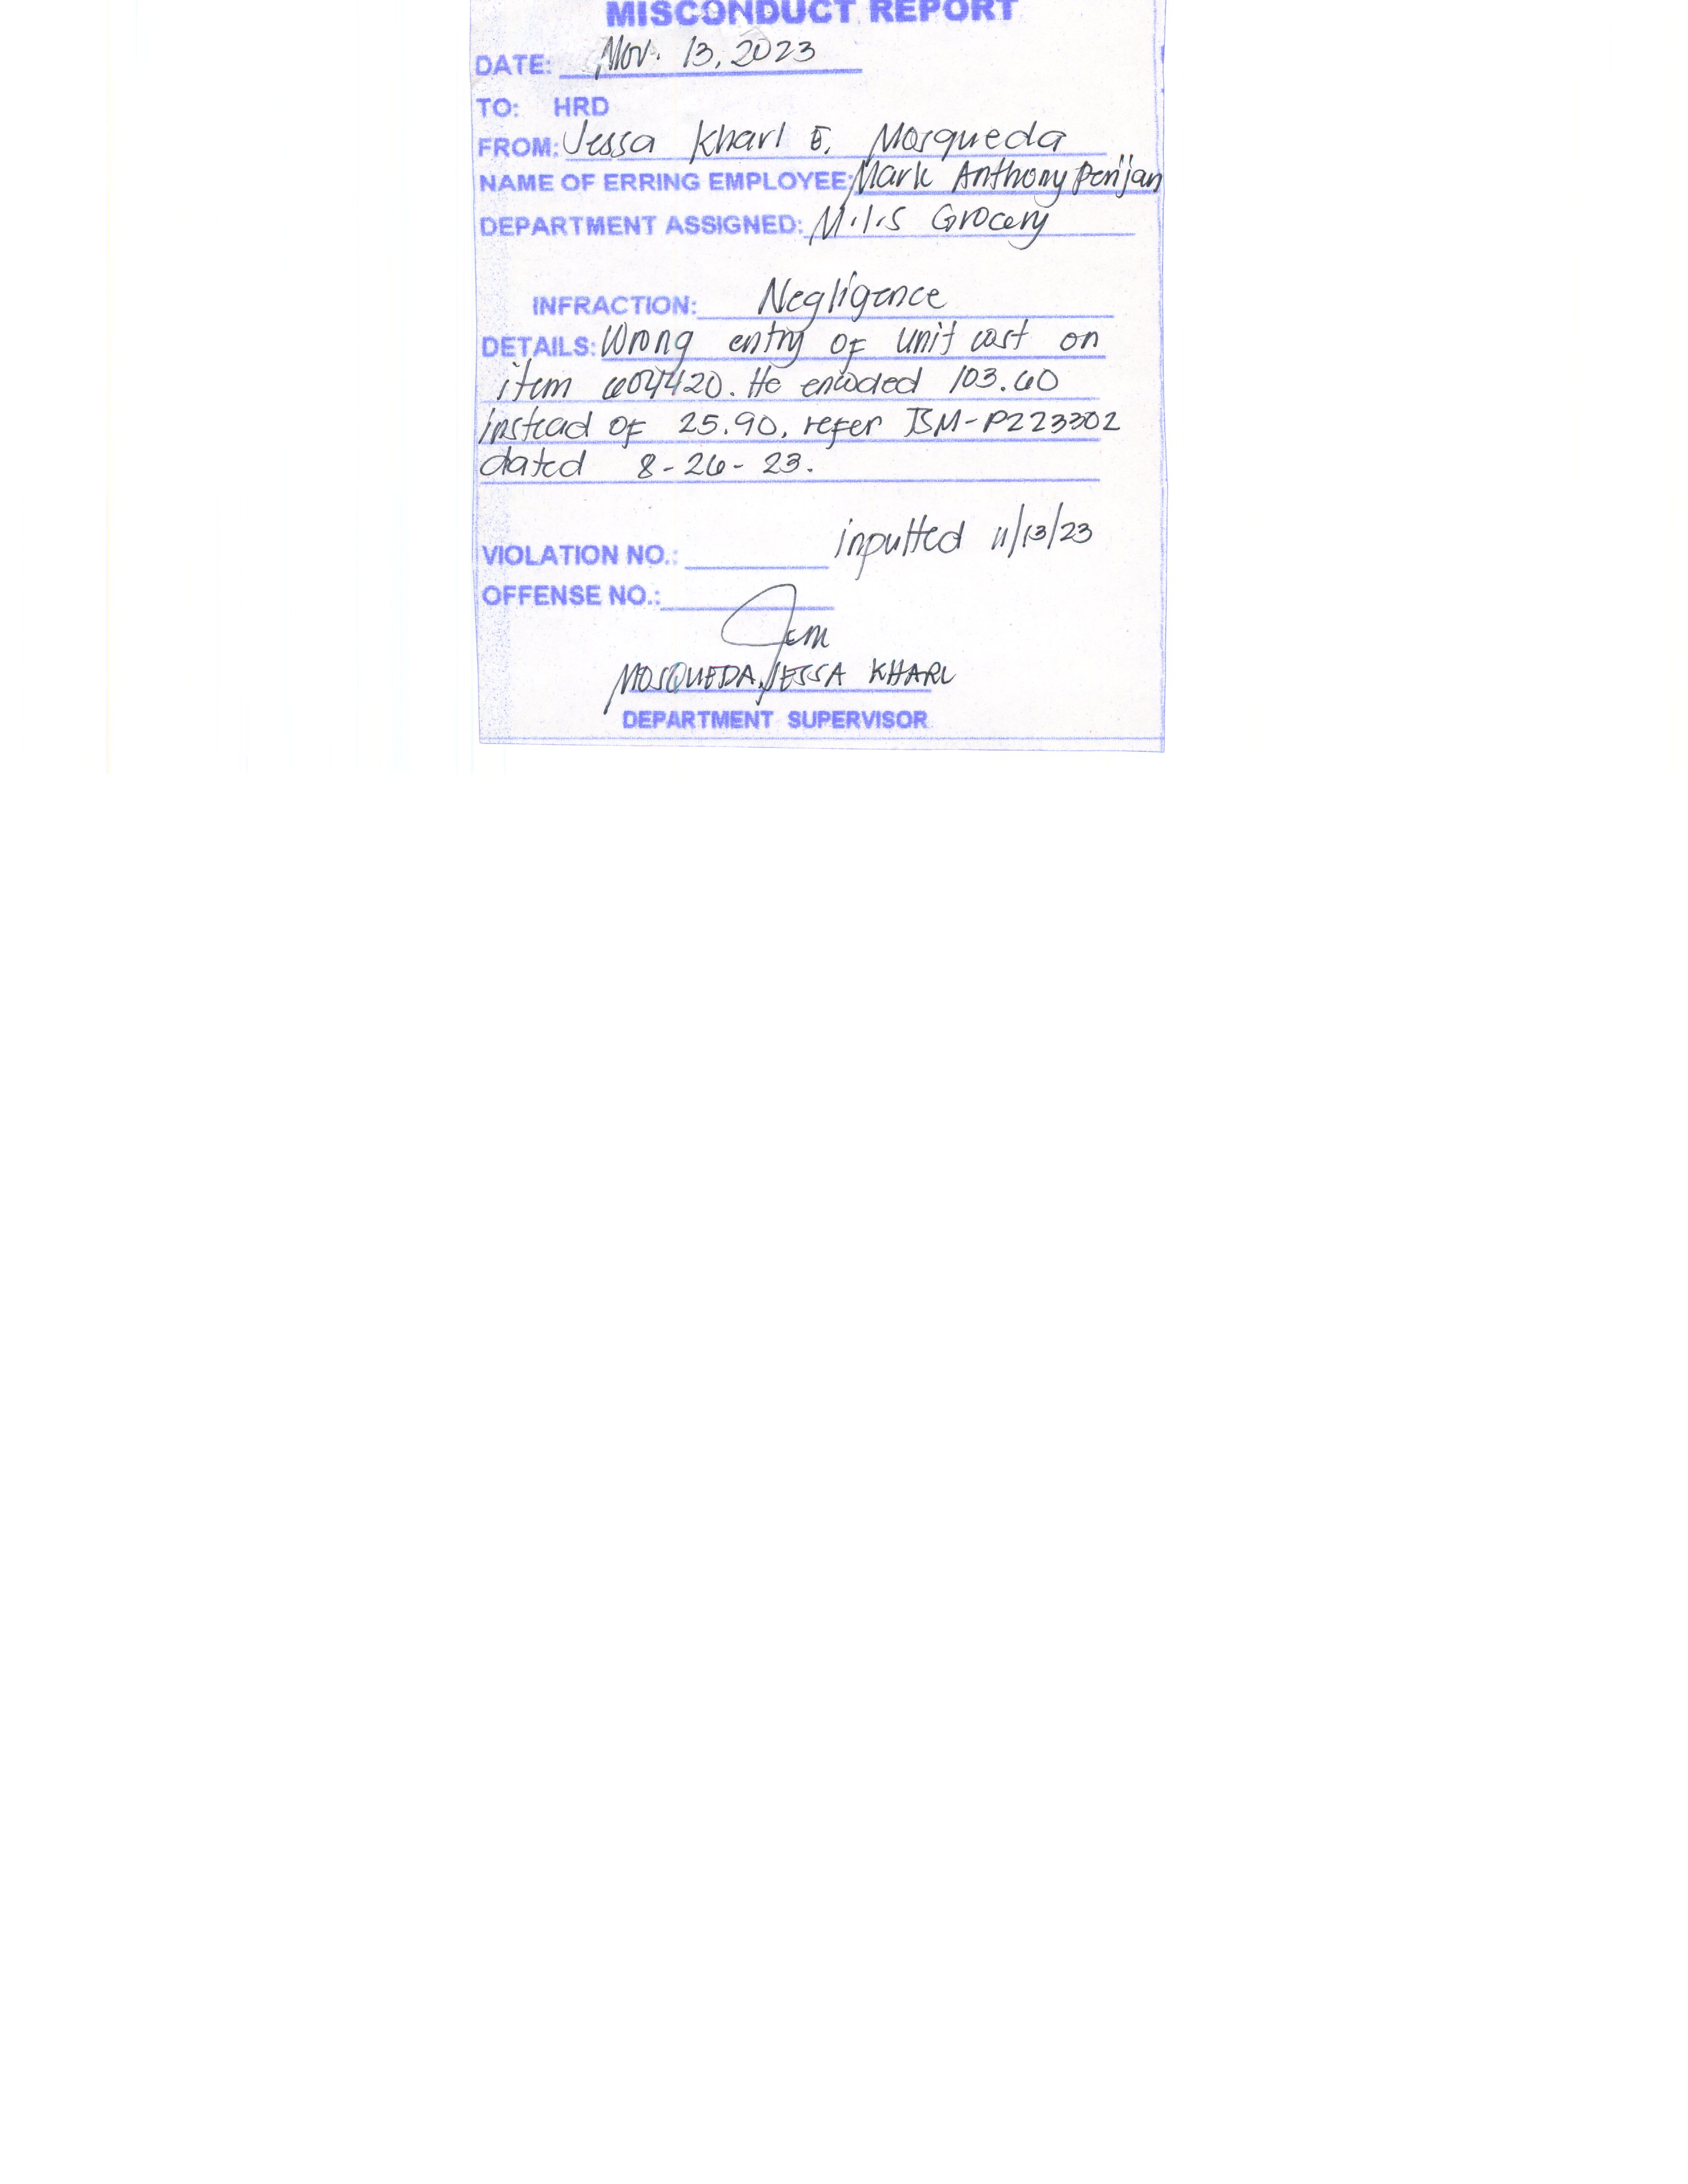 MISCONDUCT REPORT
DATE: Nov. 13, 2023
TO: HRD
FROM: Jessa Kharl E. Mosqueda
NAME OF ERRING EMPLOYEE: Mark Anthony
DEPARTMENT ASSIGNED: M.I.S Grocery
INFRACTION: Negligence
DETAILS: Wrong entry of unit cost on
item 604420. He encoded 103.60
instead of 25.90, refer
dated 8-26-23.
VIOLATION NO.: inputted 11/13/23
OFFENSE NO.:
MOSQUEDA, JESSA KHARL
DEPARTMENT SUPERVISOR